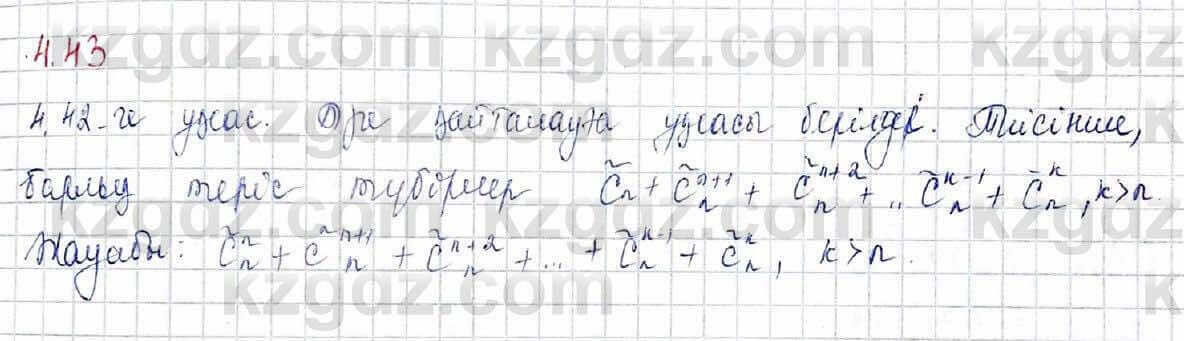 4.43
4.42-ге ұқсас. Өзге қайталауға ұқсасы берілді. Тиісінше,
барлық теріс түбірлер C̃n + C̃n^{n+1} + C̃n^{n+2} + .. C̃n^{k-1} + C̃n^k, k>n.
Жауабы: C̃n^n + C̃n^{n+1} + C̃n^{n+2} + ... + C̃n^{k-1} + C̃n^k, k>n.
kzgdz.com kzgdz.com kzgdz.com